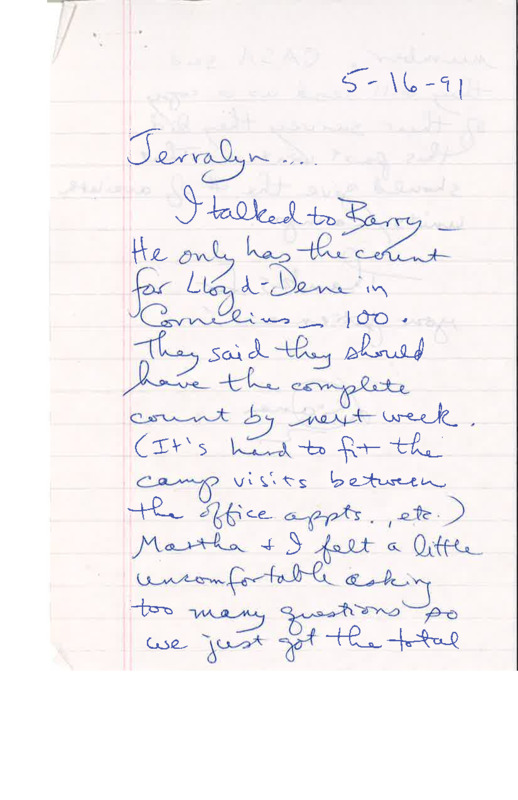 5-16-91
Jerralyn....
I talked to Barry –
He only has the count
for Lloyd-Dene in
Cornelius – 100.
They said they should
have the complete
count by next week.
(It's hard to fit the
camp visits between
the office appts., etc.)
Martha + I felt a little
uncomfortable asking
too many questions so
we just got the total